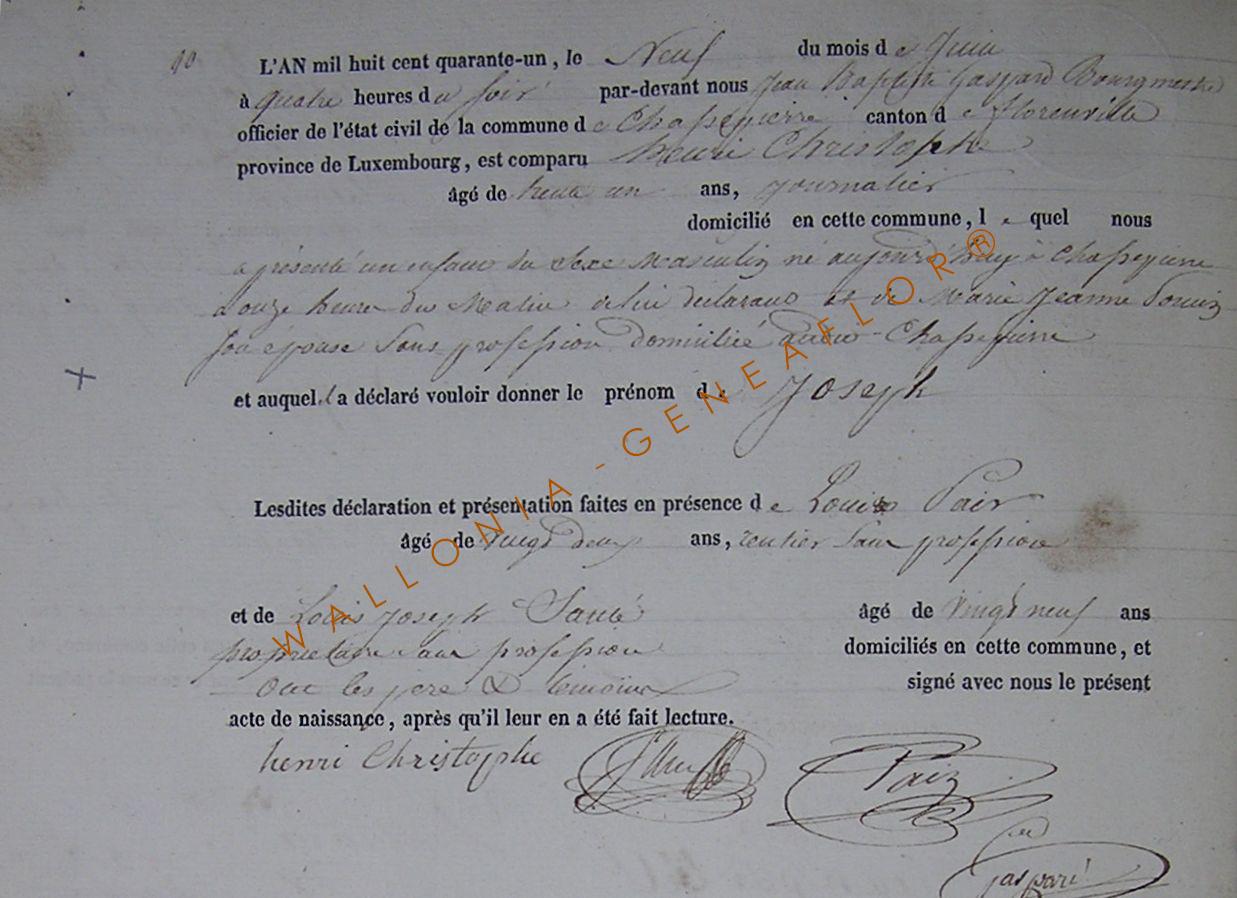 10 L'AN mil huit cent quarante-un, le Neuf du mois de Juin
à quatre heures du soir par-devant nous Jean Baptiste Gaspard Bourgmestre
officier de l'état civil de la commune de Chassepierre canton de Florenville
province de Luxembourg, est comparu henri Christophe
âgé de trente un ans, journalier
domicilié en cette commune, le quel nous
a présenté un enfant du Sexe Masculin né aujourd'huy à Chassepierre
a onze heures du Matin de lui déclarant et de Marie Jeanne
son épouse Sans profession domiciliée audit Chassepierre
et auquel il a déclaré vouloir donner le prénom de Joseph
Lesdites déclaration et présentation faites en présence de Louis
âgé de vingt deux ans, rentier Sans profession
et de Louis Joseph âgé de vingt neuf ans
propriétaire Sans profession domiciliés en cette commune, et
Ont les pere & temoins signé avec nous le présent
acte de naissance, après qu'il leur en a été fait lecture.
henri Christophe
WALLONIA-GENEAFLOR®